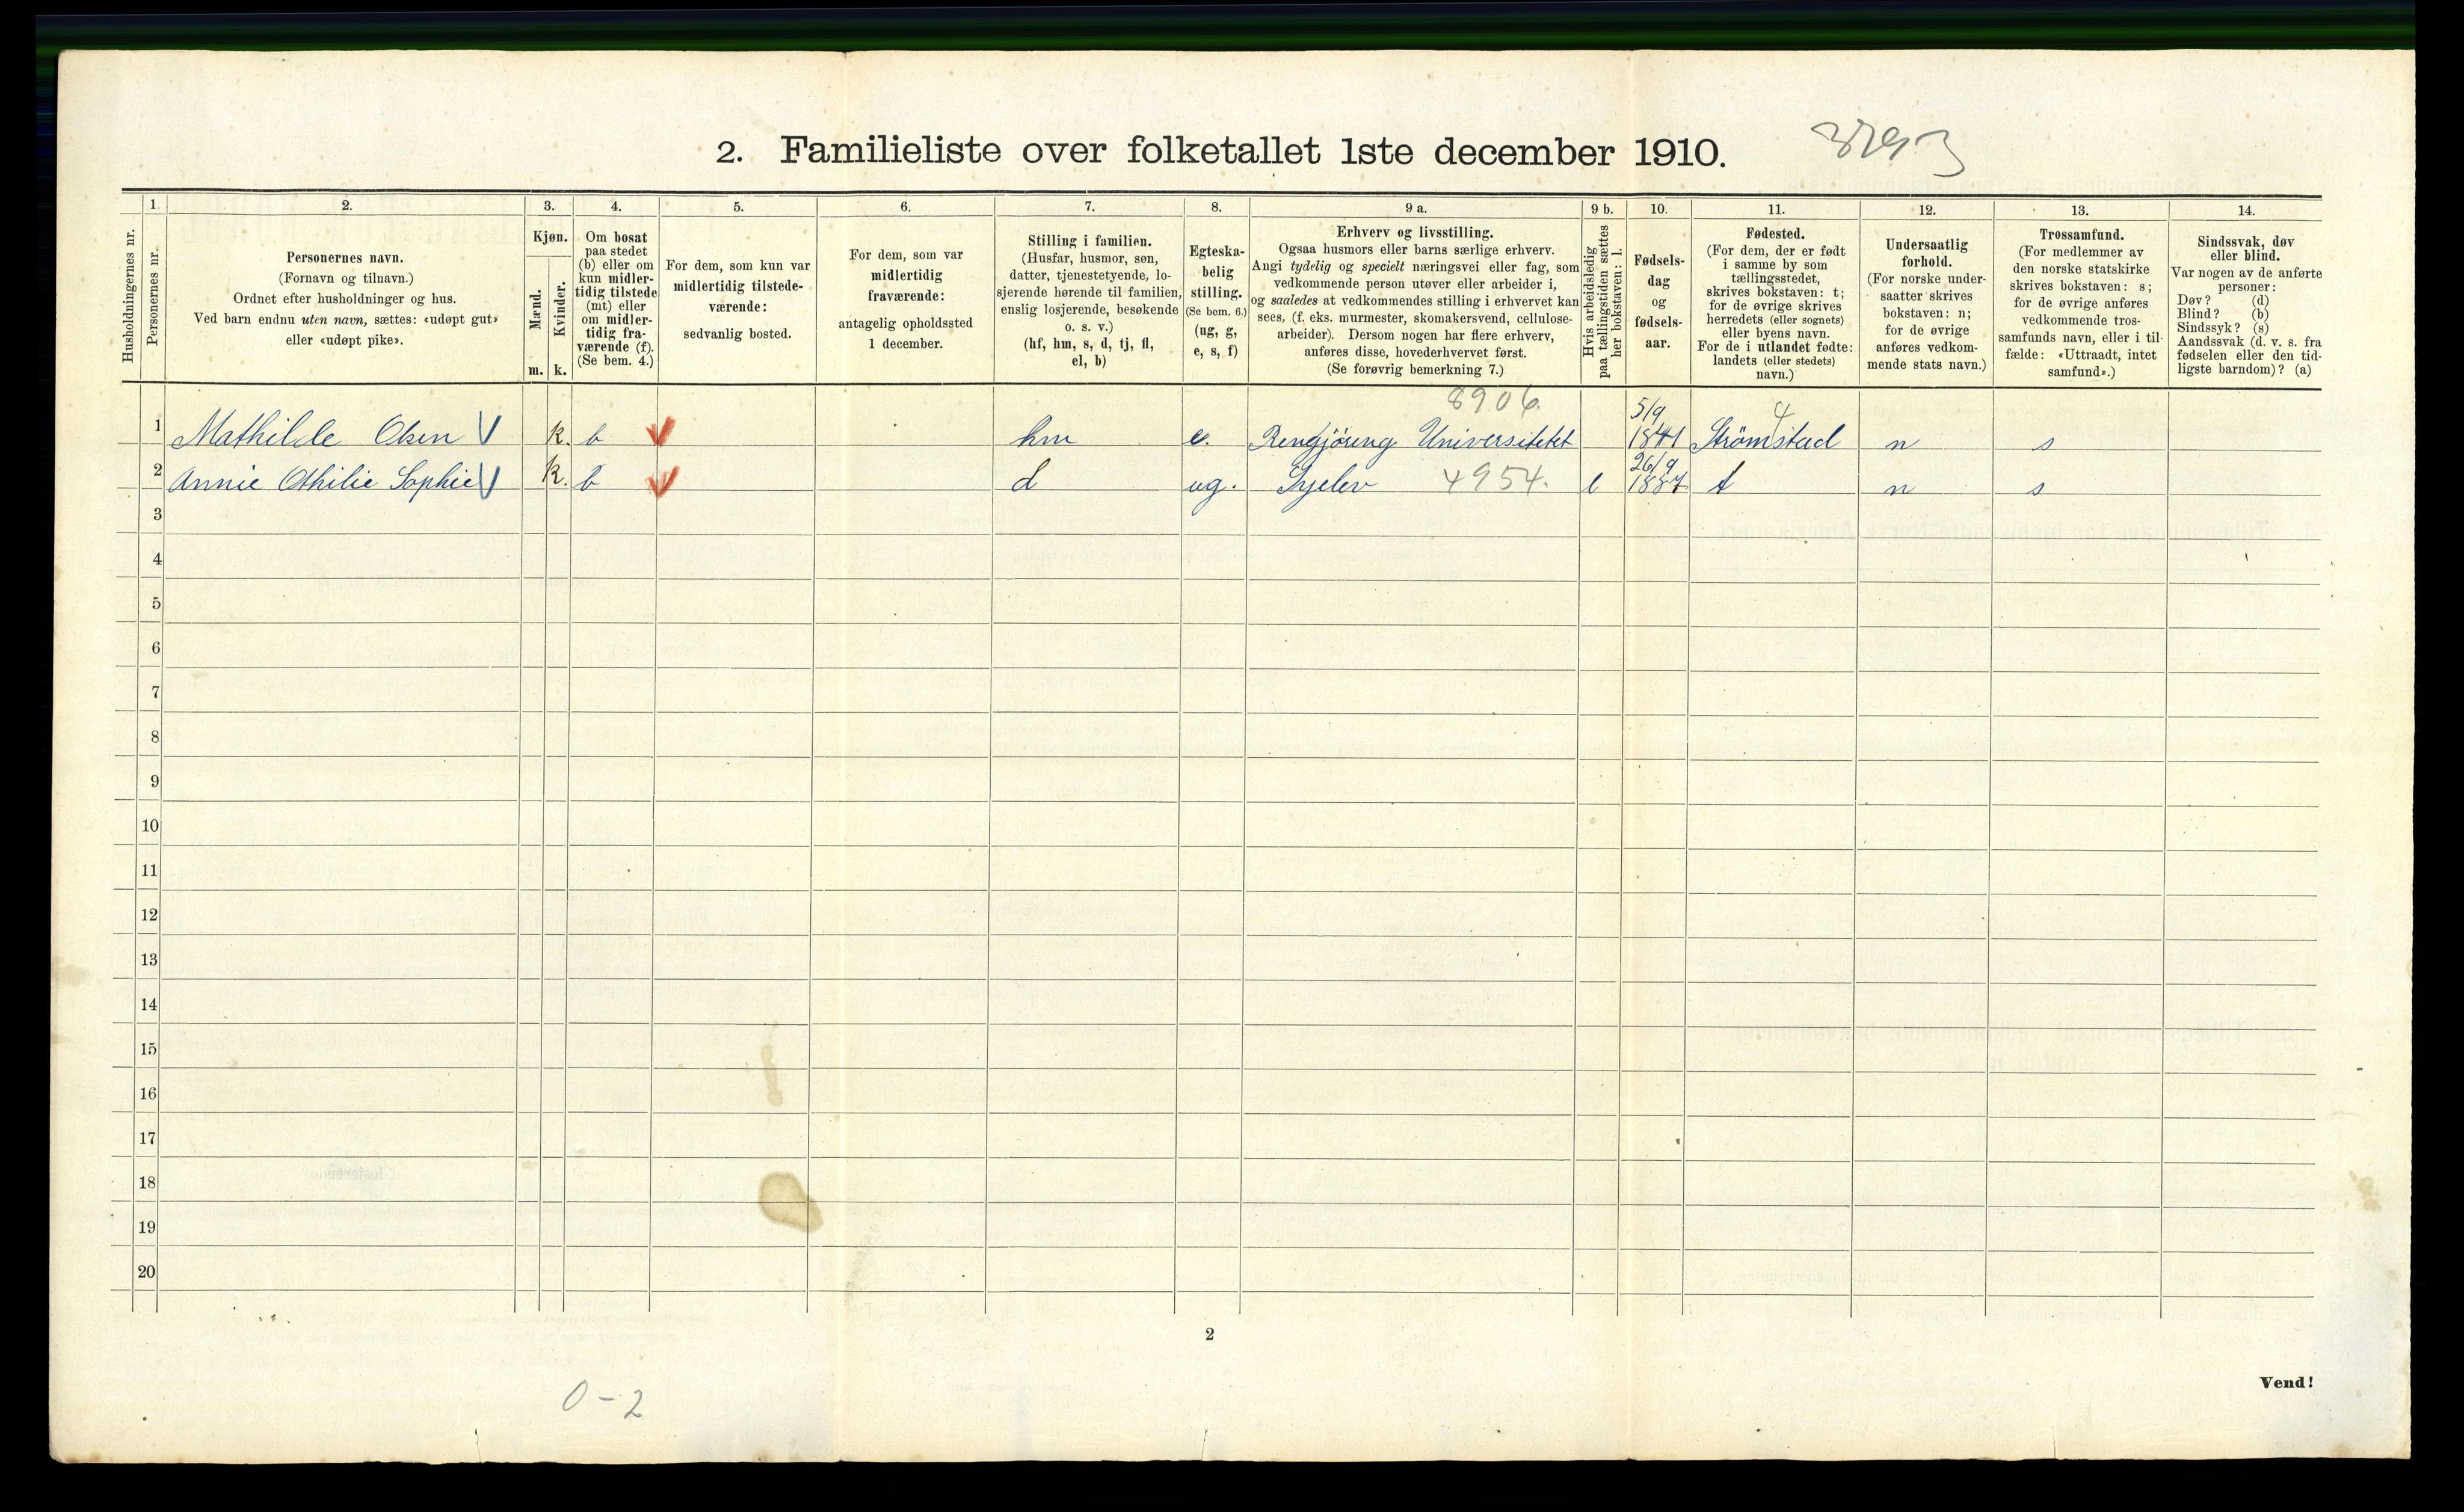 2. Familieliste over folketallet 1ste december 1910.
Husholdningernes nr.
1
Personernes nr.
2.
Personernes navn.
(Fornavn og tilnavn.)
Ordnet efter husholdninger og hus.
Ved barn endnu uten navn, sættes: «udøpt gut»
eller «udøpt pike».
3.
Kjøn.
Mænd.
Kvinder.
m. k.
4.
Om bosat
paa stedet
(b) eller om
kun midler-
tidig tilstede
(mt) eller
om midler-
tidig fra-
værende (f).
(Se bem. 4.)
5.
For dem, som kun var
midlertidig tilstede-
værende:
sedvanlig bosted.
6.
For dem, som var
midlertidig
fraværende:
antagelig opholdssted
1 december.
7.
Stilling i familien.
(Husfar, husmor, søn,
datter, tjenestetyende, lo-
sjerende hørende til familien,
enslig losjerende, besøkende
o. s. v.)
(hf, hm, s, d, tj, fl,
el, b)
8.
Egteska-
belig
stilling.
(Se bem. 6.)
(ug, g,
e, s, f)
9 a.
Erhverv og livsstilling.
Ogsaa husmors eller barns særlige erhverv.
Angi tydelig og specielt næringsvei eller fag, som
vedkommende person utøver eller arbeider i,
og saaledes at vedkommendes stilling i erhvervet kan
sees, (f. eks. murmester, skomakersvend, cellulose-
arbeider). Dersom nogen har flere erhverv,
anføres disse, hovederhvervet først.
(Se forøvrig bemerkning 7.)
9 b.
Hvis arbeidsledig
paa tællingstiden sættes
her bokstaven: l.
10.
Fødsels-
dag
og
fødsels-
aar.
11.
Fødested.
(For dem, der er født
i samme by som
tællingsstedet,
skrives bokstaven: t;
for de øvrige skrives
herredets (eller sognets)
eller byens navn.
For de i utlandet fødte:
landets (eller stedets)
navn.)
12.
Undersaatlig
forhold.
(For norske under-
saatter skrives
bokstaven: n;
for de øvrige
anføres vedkom-
mende stats navn.)
13.
Trossamfund.
(For medlemmer av
den norske statskirke
skrives bokstaven: s;
for de øvrige anføres
vedkommende tros-
samfunds navn, eller i til-
fælde: «Uttraadt, intet
samfund».)
14.
Sindssvak, døv
eller blind.
Var nogen av de anførte
personer:
Døv? (d)
Blind? (b)
Sindssyk? (s)
Aandssvak (d. v. s. fra
fødselen eller den tid-
ligste barndom)? (a)
8906. 5/9 4
1 Mathilde Olsen k. b hm e. Rengjöring Universitetet 1841 Strömstad n s
26/9
2 Annie Othilie Sophie k. b d ug. Syelev 4954. l 1887 t n s
3
4
5
6
7
8
9
10
11
12
13
14
15
16
17
18
19
20
2
Vend!
0-2